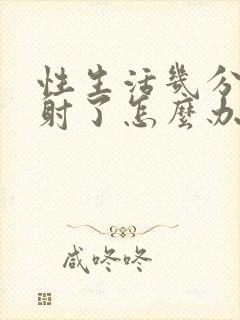 性生活幾分
射了怎麼办
咸咚咚